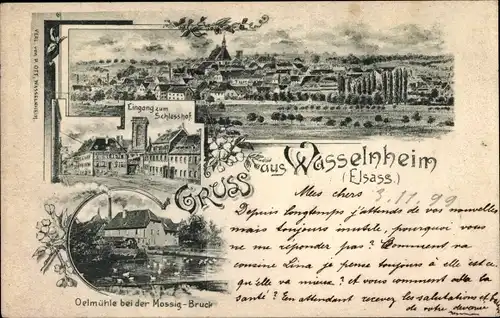 VERL. VON P. OTT, WASSELNHEIM.
Eingang zum
Schlosshof
GRUSS aus Wasselnheim
(Elsass.)
Oelmühle bei der Mossig-Bruck
3.11.99
Mes chers
Depuis longtemps j'attends de vos nouvelles
mais toujours inutile, pourquoi vous
ne me répondez pas? Comment va
cousine Lina je pense toujours à elle est-ce
qu'elle va mieux? et vous comment va la
santé? En attendant recevez les salutations
de votre devouée